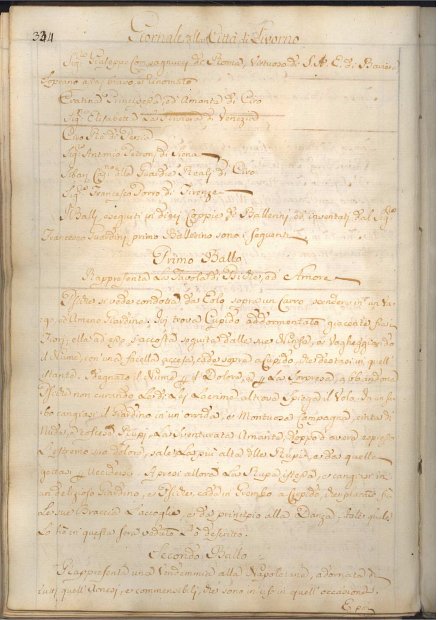 344 Giornale della Città di Livorno
Sig.r Giuseppe Compagnucci di Roma, Virtuoso di S. A. E. di Baviera
Soprano assai bravo, e rinomato
Erattina Principessa, ed Amante di Ciro
Sig.ra Elisabetta di Venezia
Ciro Re di Persia
Sig.r Antonio Petroni di Siena
Sibari Cap.no delle Guardie Reali di Ciro
S.r Francesco Porro di Firenze
Il Balli, eseguiti in dieci Coppie di Ballerini, ed inventati dal Sig.re
Francesco primo Ballerino sono i seguenti
Primo Ballo
Rappresenta La Favola di Psiche, ed Amore
Psiche si vede condotta da Eolo sopra un Carro, scendere in un va-
go, ed Ameno Giardino. Ivi trova Cupido addormentato giacente fra i
Fiori; ella ad esso s'accosta seguita dalle sue Ninfe, e Vagheggiando
il Nume, con una facella accesa, cade sopra a Cupido, che destossi in quell'
istante. Sdegnato il Nume p. il Dolore, e p. La Sorpresa, abbandona
Psiche non curando Le di Lei Lacrime altrove Spiega il Volo. In un su-
bo cangiasi il Giardino in un orrida, e Montuosa Campagna, cinta di
Nude, e scoscese Rupi. La Sventurata Amante, doppo d'avere espresso
L'estremo suo dolore, sale La più alta delle Rupi, e da quella
gettasi p. Uccidersi. Apresi allora La Rupe istessa, e cangiasi in
un delizioso Giardino, e Psiche cade in Grembo a Cupido, che pianse fra
le sue Braccia L'accoglie, e da principio alla Danza, tale quale
Lo ho in questa sera veduto L'ò descritto.
Secondo Ballo
Rappresenta una Vendemmia alla Napoletana, adornata di
tutti quell'Arnesi, e commestibili, che sono in uso in quell'occasione.